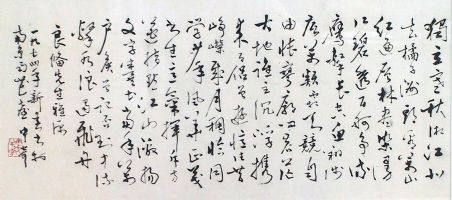 獨立寒秋湘江北
去橘子洲頭看萬山
紅遍層林盡染漫
江碧透百舸爭流
鷹擊長空魚翔淺
底萬類霜天競自
由悵寥廓問蒼茫
大地誰主沉浮攜
來百侶曾遊憶往昔
崢嶸歲月稠恰同
學少年風華正茂
書生意氣揮斥方
遒指點江山激揚
文字糞土當年萬
戶侯曾記否到中流
擊水浪遏飛舟
先生雅
一九七四年新春
南京